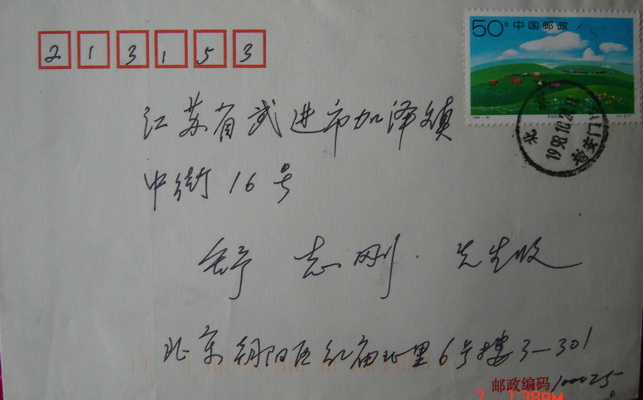 50分 中国邮政
213153
北京 1998.10.2
江苏省武进市加泽镇
中街16号
舒志刚 先生收
北京朝阳区红庙北里6号楼3-301
邮政编码 100025